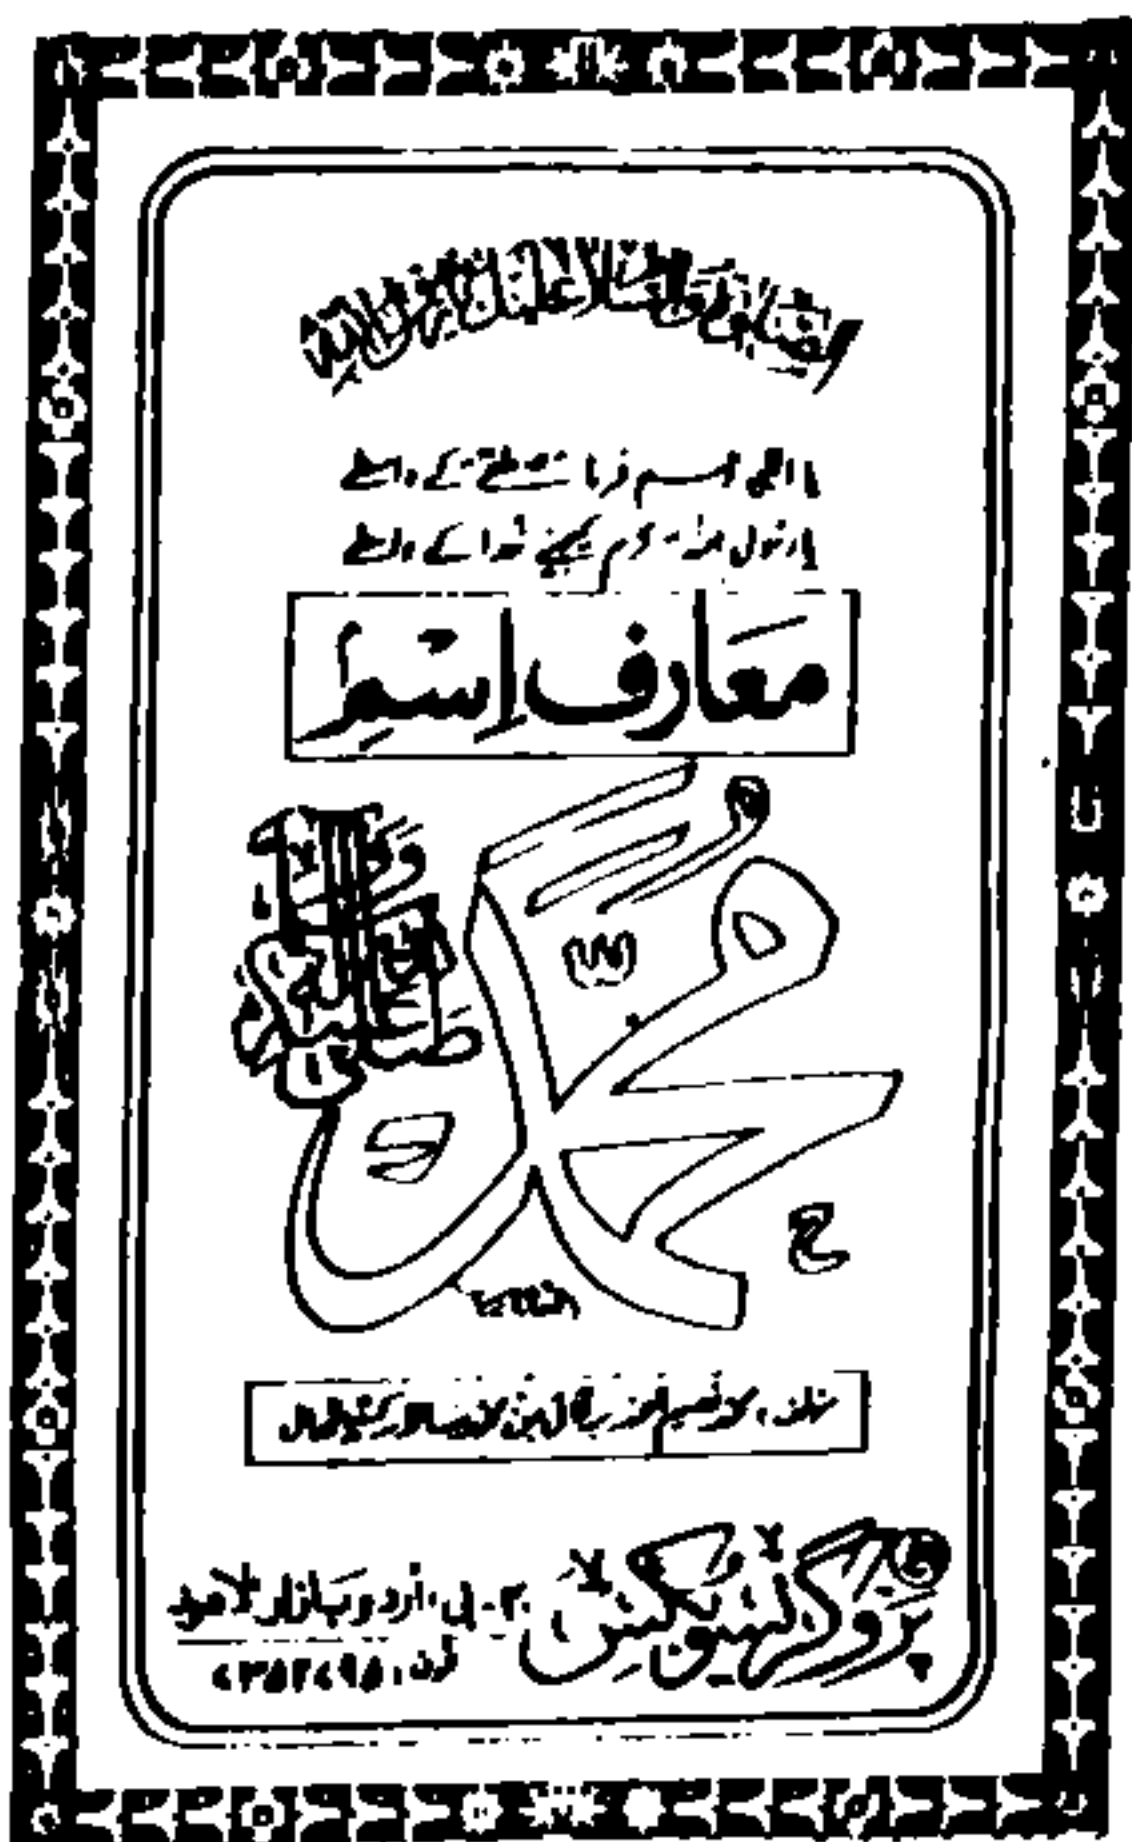 الصلوٰة والسلام علیک یا رسول اللہ
یا الٰہی رحم فرما مصطفٰے کے واسطے
یا رسول اللہ کرم کیجئے خدا کے واسطے
معارف اسم
محمد
صلی اللہ علیہ وآلہ وسلم
پروگریسو بکس ۴۰۔بی، اردو بازار لاہور
فون: ۷۳۵۲۷۹۵